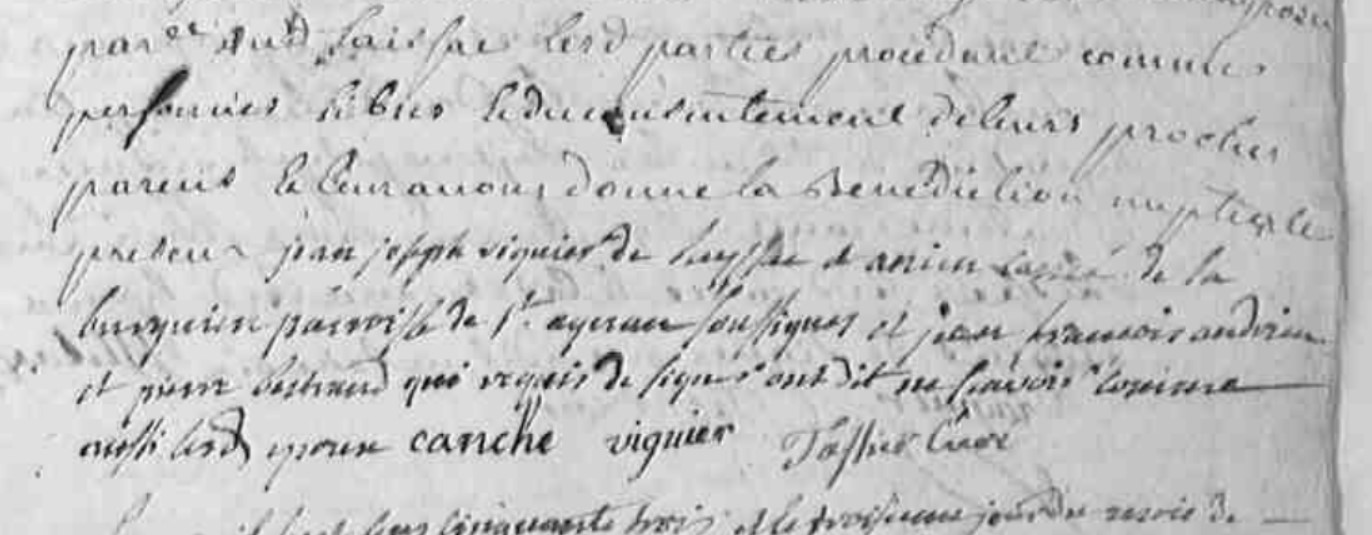 laissac lesd parties procedant comme
personnes libres et du consentement de leurs proches
parens et leur avons donne la Benediction nuptialle
presens jean joseph viguier de laissac et de la
paroisse de St. soussignes et jean francois andrieu
et pierre bertrand qui requis de signer ont dit ne scavoir comme
aussi lesd epoux canche viguier curé
cinquante trois et le troisieme jour du mois de